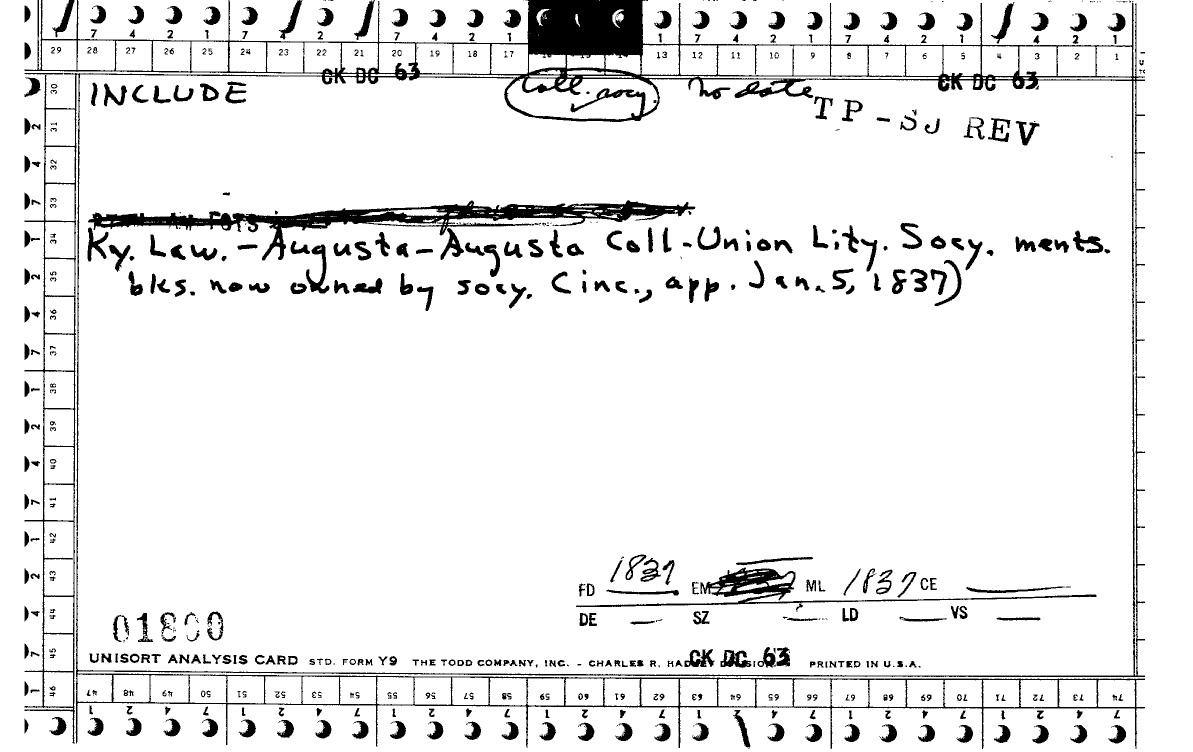 7 4 2 1 7 4 2 1 7 4 2 1 1 7 4 2 1 7 4 2 1 7 4 2 1
29 28 27 26 25 24 23 22 21 20 19 18 17 13 12 11 10 9 8 7 6 5 4 3 2 1
CK DC 63 CK DC 63
INCLUDE Coll. socy. no date
TP-SJ REV
Ky. Law. - Augusta - Augusta Coll - Union Lity. Socy. ments.
bks. now owned by socy. Cinc., app. Jan. 5, 1837)
30
2 31
4 32
7 33
1 34
2 35
4 36
7 37
1 38
2 39
4 40
7 41
1 42
2 43
4 44
7 45
1 46
FD 1837 EM ML 1837 CE —
DE — SZ — LD — VS —
01800
CK DC 63
UNISORT ANALYSIS CARD STD. FORM Y9 THE TODD COMPANY, INC. - CHARLES R. HADLEY DIVISION PRINTED IN U.S.A.
47 48 49 50 51 52 53 54 55 56 57 58 59 60 61 62 63 64 65 66 67 68 69 70 71 72 73 74
1 2 4 7 1 2 4 7 1 2 4 7 1 2 4 7 1 2 4 7 1 2 4 7 1 2 4 7